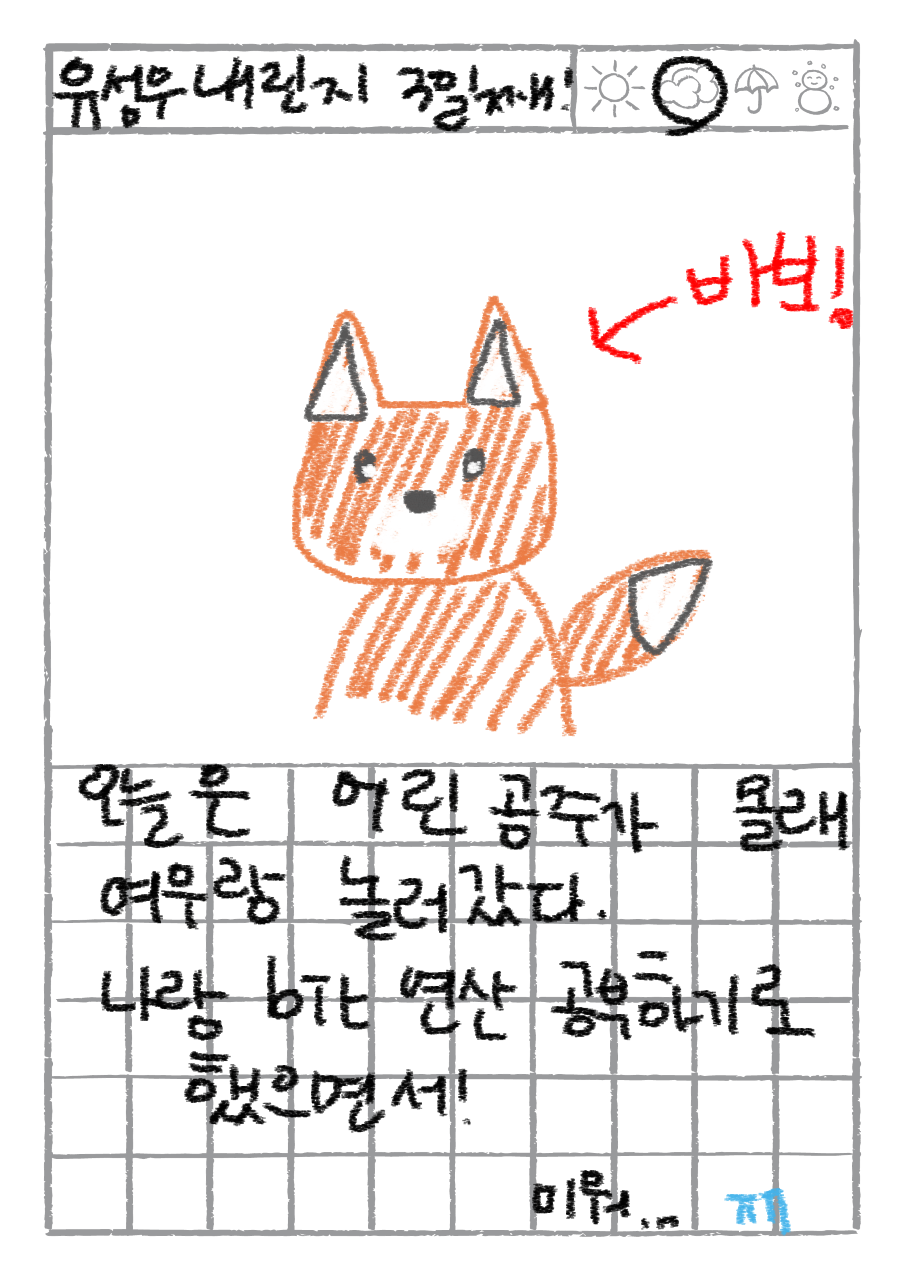 유성우 내린지 3일째!
바보!
오늘은 어린공주가 몰래
여우랑 놀러갔다.
나랑 bit 연산 공부하기로
했으면서!
미워...